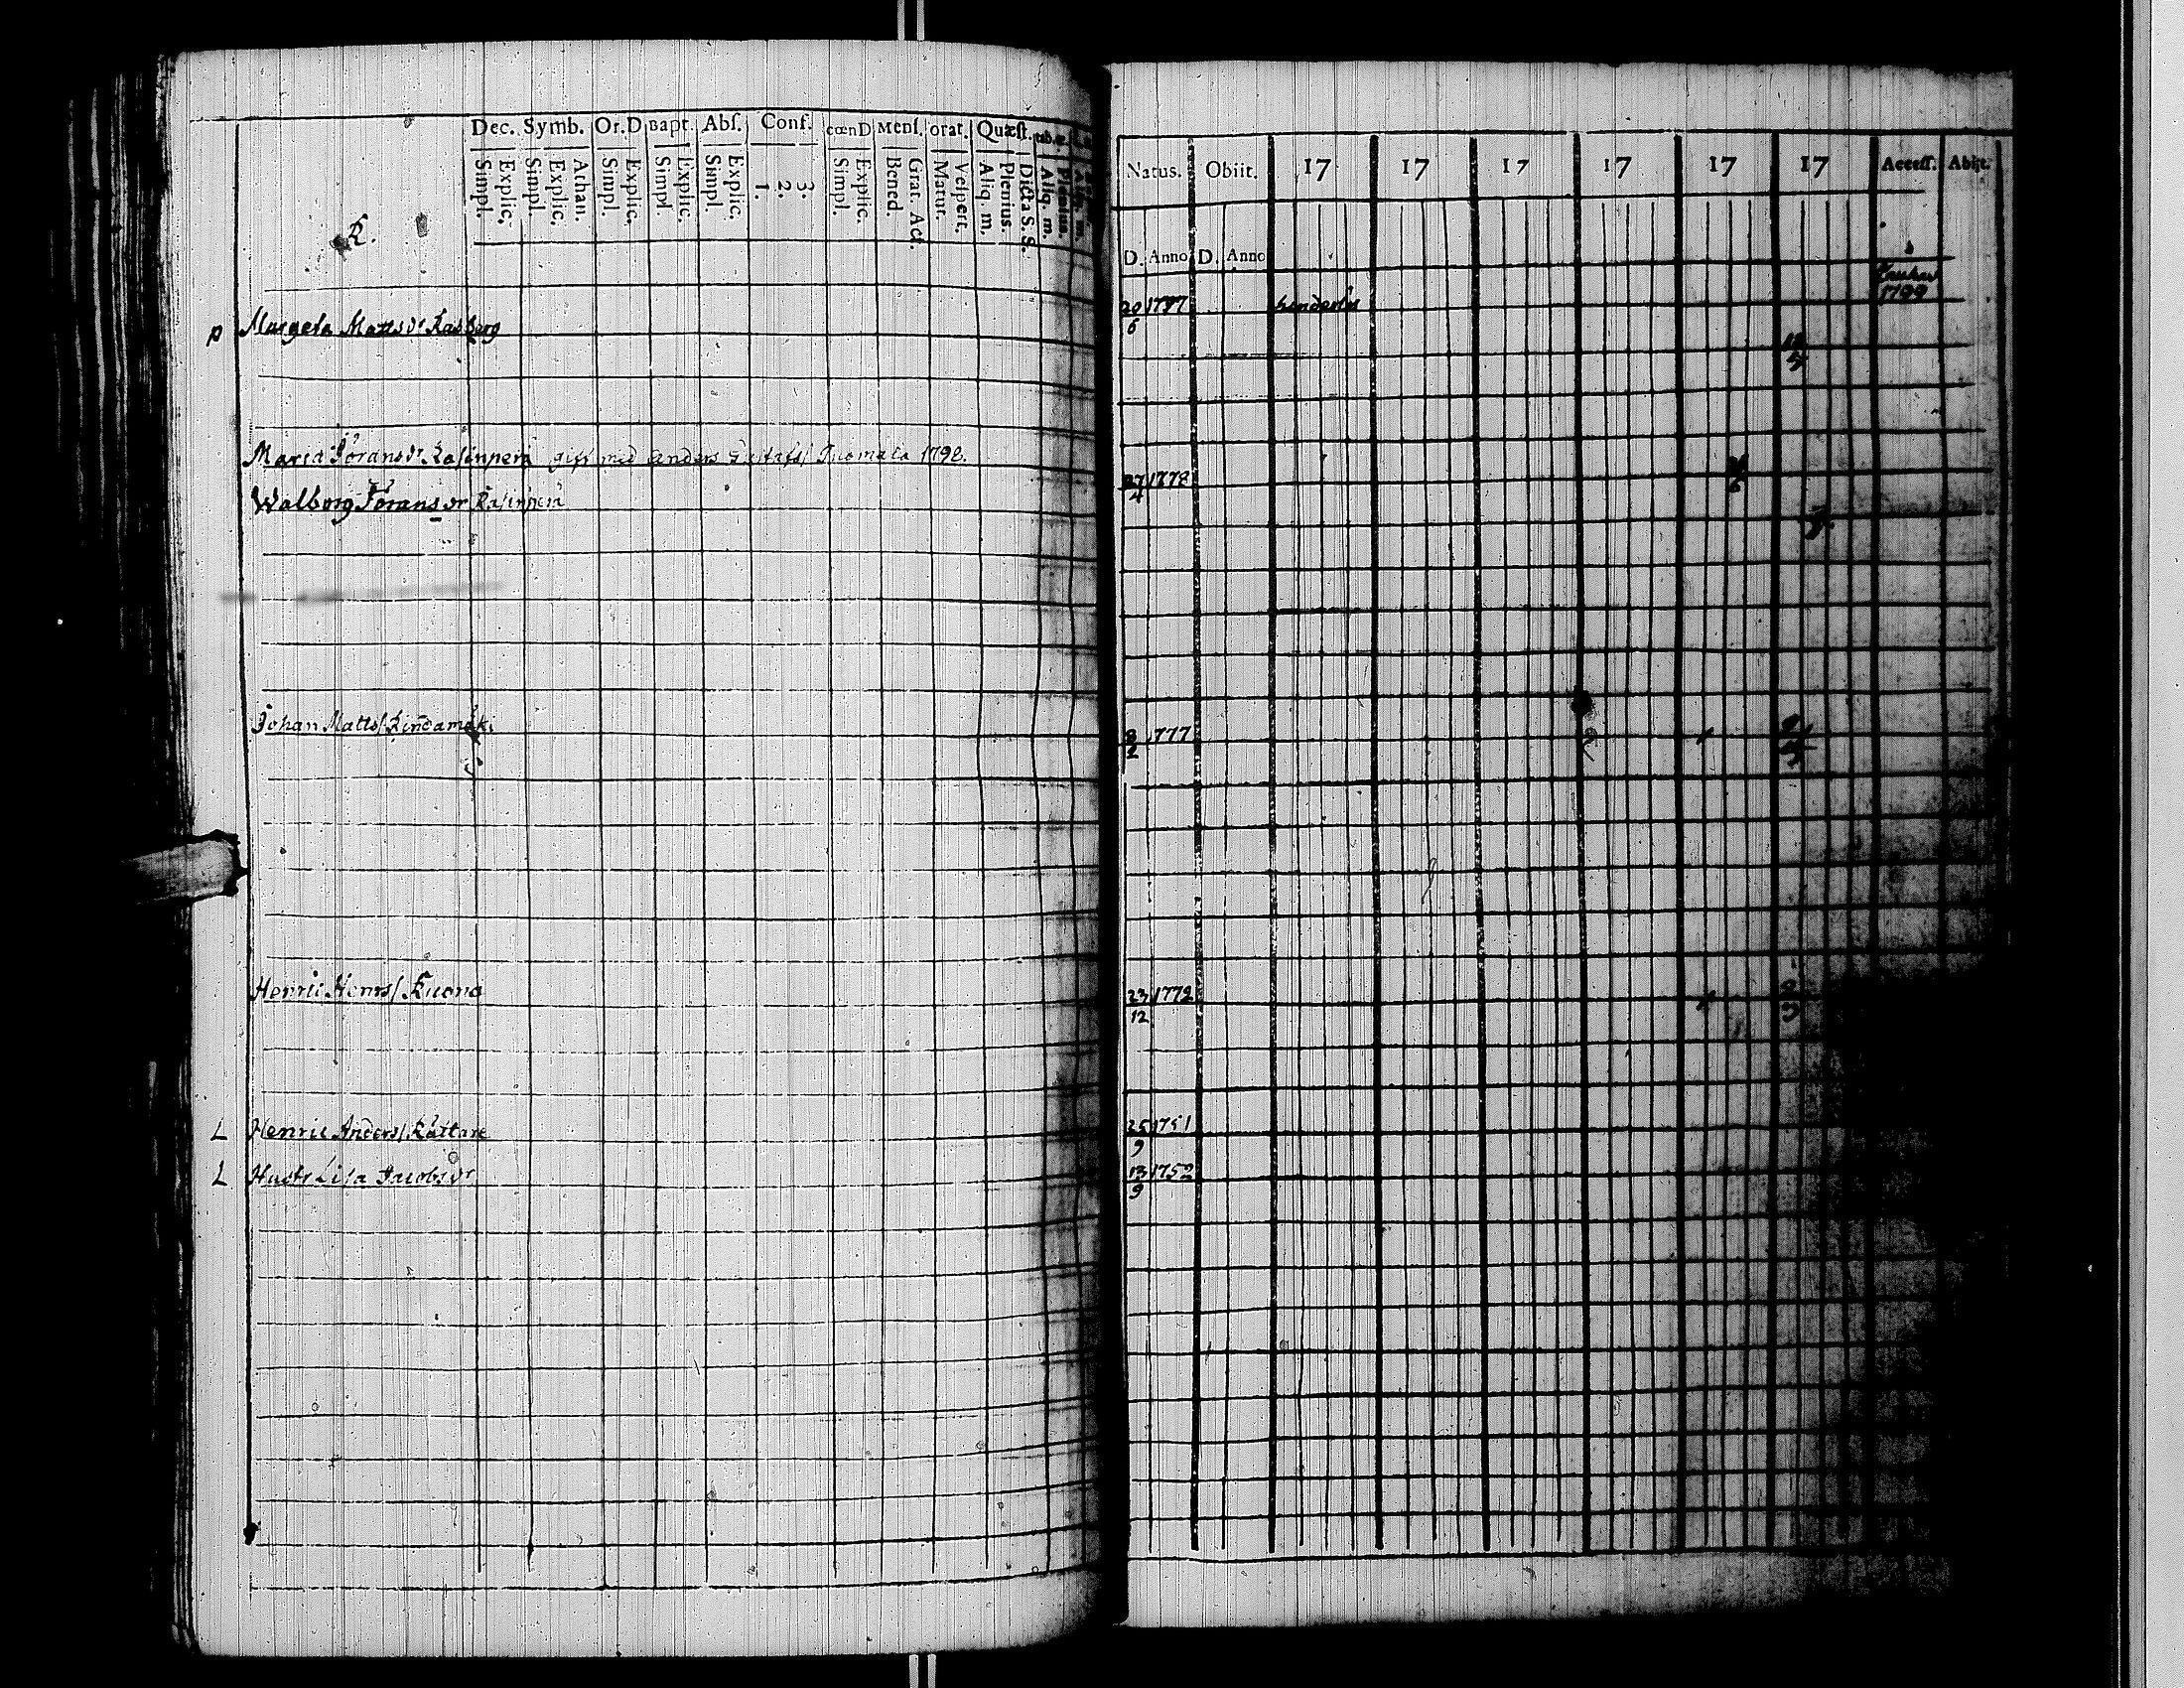 Dec. Symb. Or.D Bapt. Abſ. Conf. cœnD Menſ. orat. Quæſt.
Simpl. Explic. Simpl. Explic. Athan. Simpl. Explic. Simpl. Explic. Simpl. Explic. 1. 2. 3. Simpl. Explic. Bened. Grat. Act. Matut. Veſpert. Aliq. m. Plenius. Dicta S. S. Aliq. m. Plenius.
K.
p Margeta Mattsdr
Maria Jöransdr Kasinperä gift med Anders Gustafs/ 1792.
Walborg Jörans dr Kasinperä
Johan Matts/ Rindamäki
Henric Henrs/ Kuona
L Henric Anders/ Rättare
L Hustr Lisa Jacobsdr
Natus. Obiit. 17 17 17 17 17 17 Acceſſ. Abijt.
D. Anno D. Anno
1799
20/6
27/4 1778
8/2 1777
23/12 1772
25/9 1751
13/9 1752